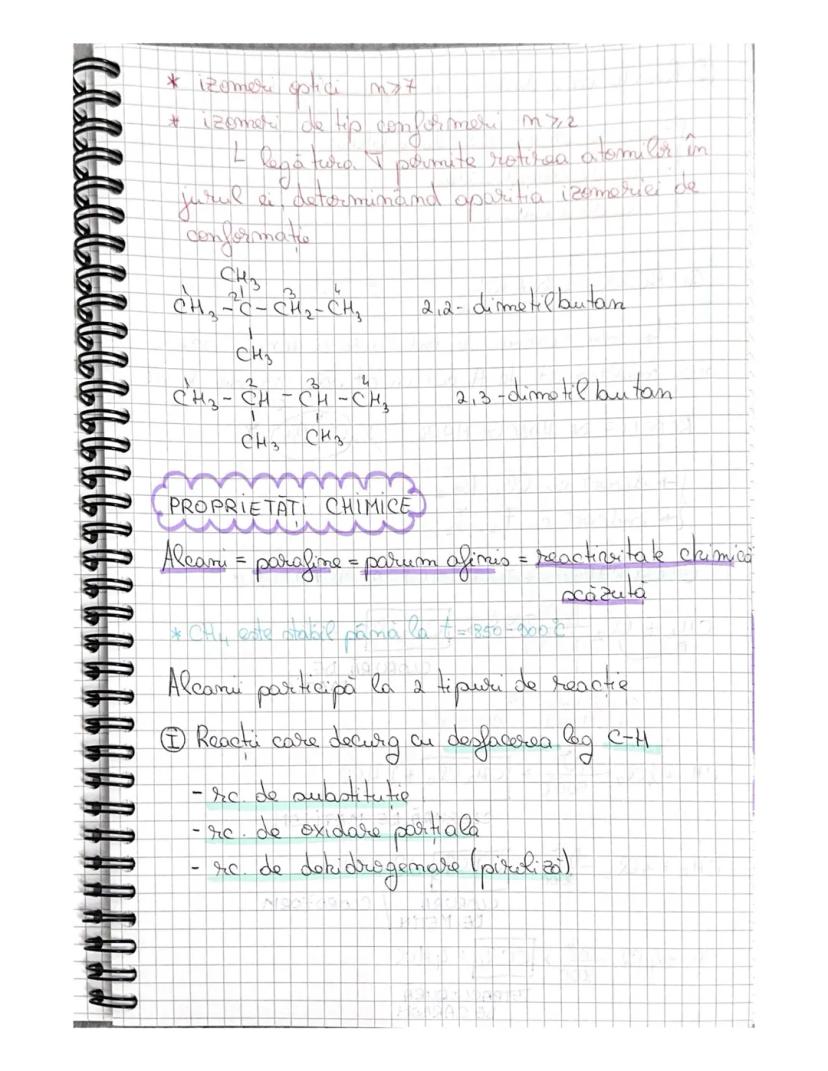 * izomeri optici n≥7
* izomeri de tip conformeri n≥2
∟ legătura σ permite rotirea atomilor în
jurul ei, determinând apariția izomeriei de
conformație
CH₃
1 2 3 4
CH₃-C-CH₂-CH₃ 2,2-dimetilbutan
CH₃
1 2 3 4
CH₃-CH-CH-CH₃ 2,3-dimetilbutan
CH₃ CH₃
PROPRIETĂȚI CHIMICE
Alcani = parafine = parum afinis = reactivitate chimică
scăzută
* CH₄ este stabil până la t=850-900°C
Alcanii participă la 2 tipuri de reacție
Ⓘ Reacții care decurg cu desfacerea leg C-H
- rc. de substituție
- rc. de oxidare parțială
- rc. de dehidrogenare (piroliză)